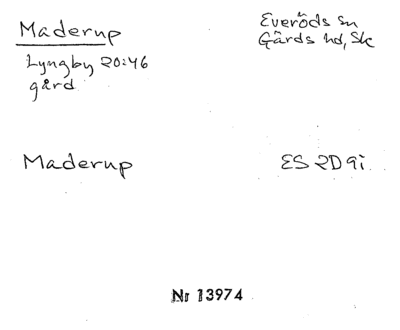 Maderup
Everöds sn
Gärds hd, Sk
Lyngby 20:46
gård
Maderup
ES 2D 9i
Nr 13974